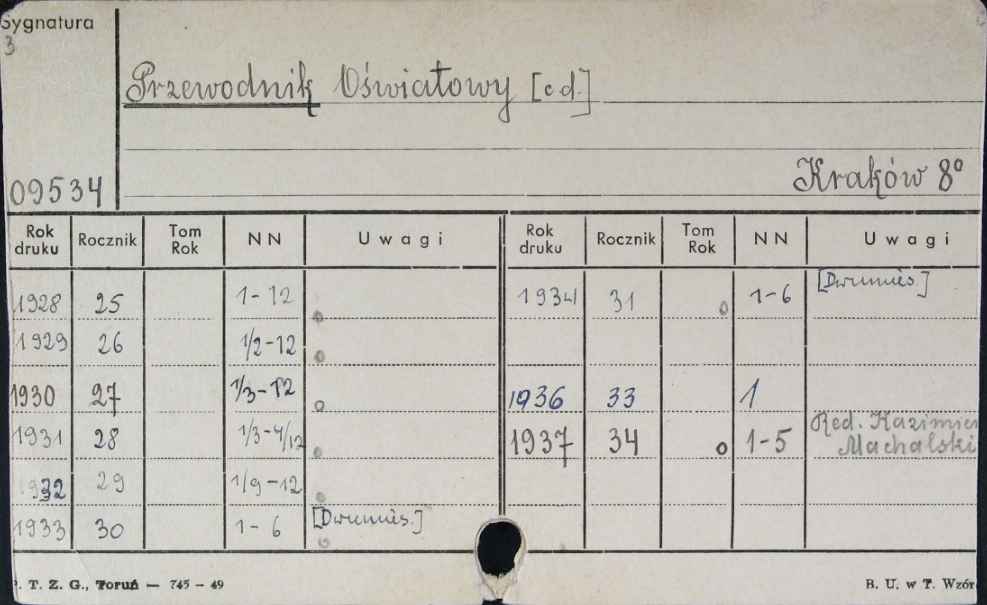 Sygnatura
3
Przewodnik Oświatowy [c d.]
Kraków 8°
09534
Rok druku Rocznik Tom Rok N N Uwagi Rok druku Rocznik Tom Rok N N Uwagi
1928 25 1-12 1934 31 o 1-6 [Dwumies.]
1929 26 1/2-12
1930 27 1/3-12 o 1936 33 1
1931 28 1/3-4/12 1937 34 o 1-5 Red. Kazimier
Machalski
1932 29 1/9-12
1933 30 1-6 [Dwumies.]
. T. Z. G., Toruń — 745 - 49
B. U. w T. Wzór